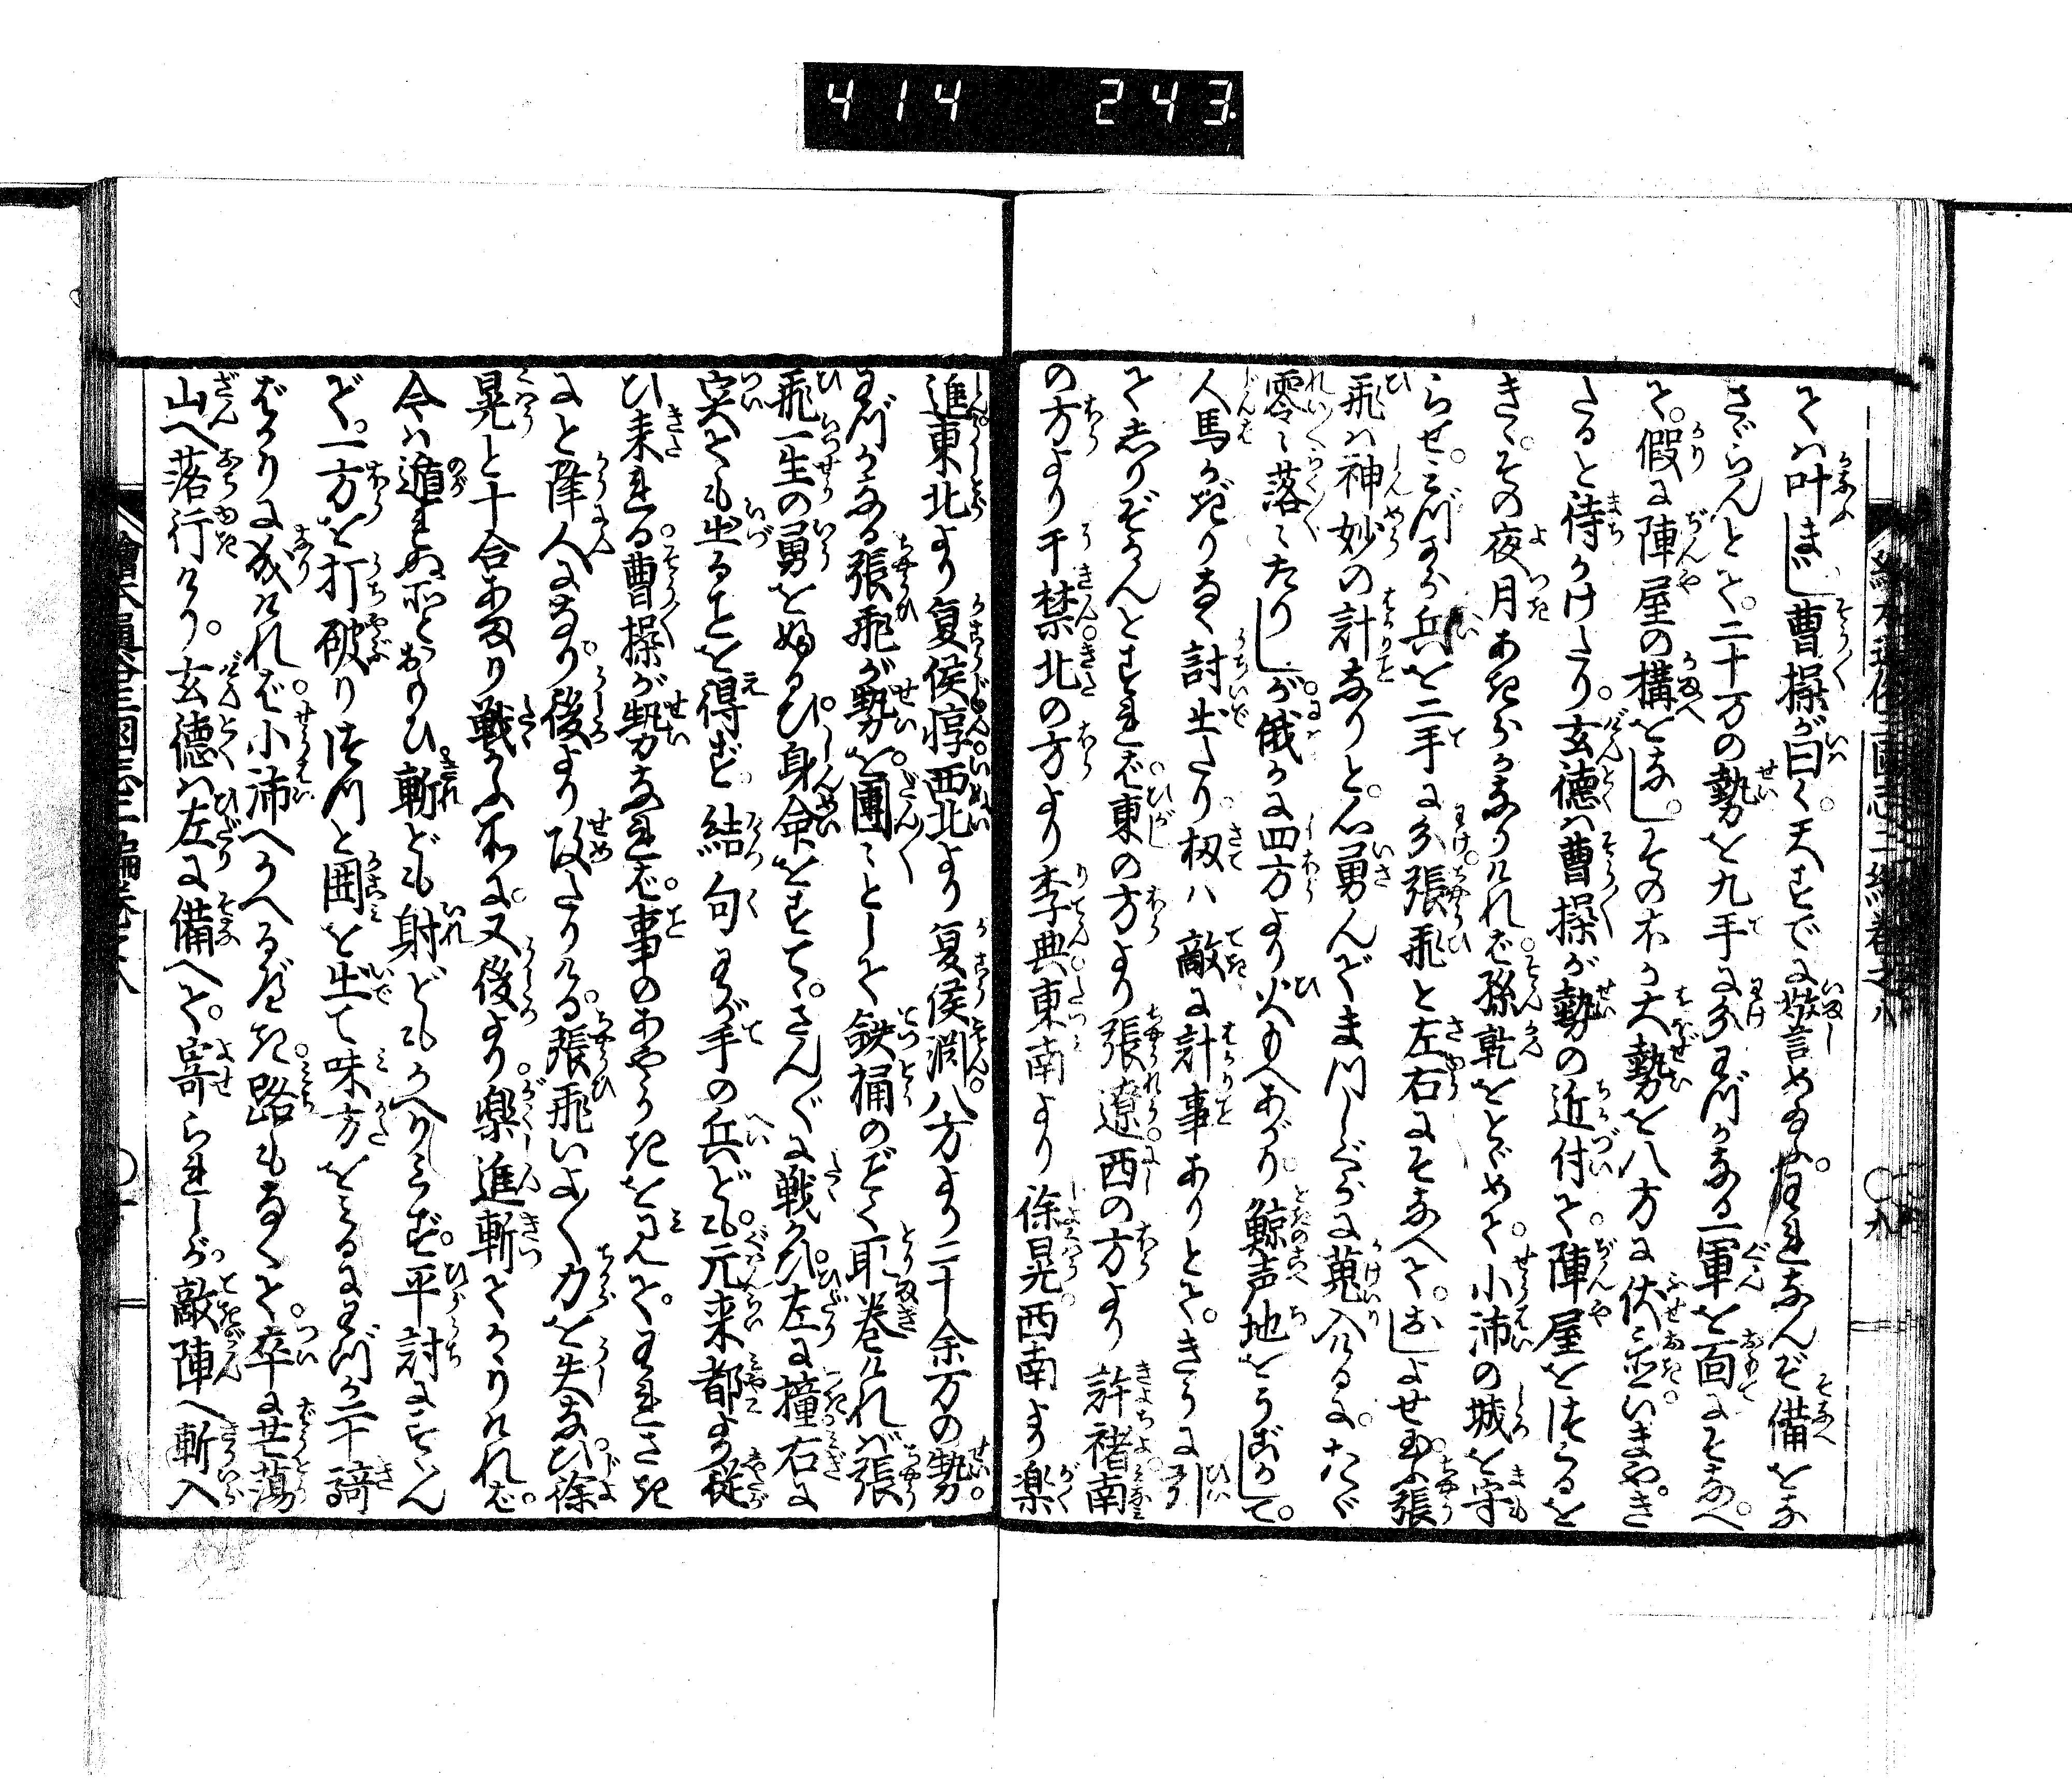 414 243
ては叶まじ曹操が曰く。天すでに警言め玉ふ。なんぞ備をな
さゞらんとて。二十万の勢を九手に分わづかなる一軍を面にそなへ
て。假に陣屋の構をなし。そのホか大勢を八方に伏を置。いまや。き
たると待かけたり。玄徳は曹操が勢の近付て。陣屋をつくるを
きゝ。その夜月あきらかなりければ。孫乾をとゞめて。小沛の城を守
らせ。みづから兵を二手に分。張飛と左右にそなへて。おしよせ玉ふ。張
飛は神妙の計なりと。心勇んでまつしぐらに蒐入けるに。たゞ
零々落々たりしが。俄かに四方より火もへあがり。鯨声地をうごかして。
人馬かぎりなく討出たり。扨は敵に計事ありとて。きうに引
てしりぞかんとすれば。東の方より張遼。西の方より許褚。南
の方より于禁。北の方より李典。東南より徐晃。西南より楽
進。東北より夏侯惇。西北より夏侯淵。八方より二十余万の勢。
わづかなる張飛が勢を。團々として鉄桶のごとく取巻ければ。張
飛一生の勇を
突ども出ることを得ず。結句わが手の兵ども。元来都より従
ひ来れる。曹操が勢なれば。事のあやうきをみて。われさき
にと降人になり。後より攻たりける。張飛いよ〳〵力を失なひ。徐
晃と十合あまり戦かふ所に。又後より。楽進斬てかゝりければ。
今は遁れぬ所とおもひ。斬ども射どもかへりみず。平討にすゝん
で。一方を打破り。はつと囲を出て味方をみるにわづか二十騎
ばかりに成ければ。小沛へかへるべき。路もなくて。卒に芒蕩
山へ落行けり。玄徳は左に備へて。寄られしが。敵陣へ斬入